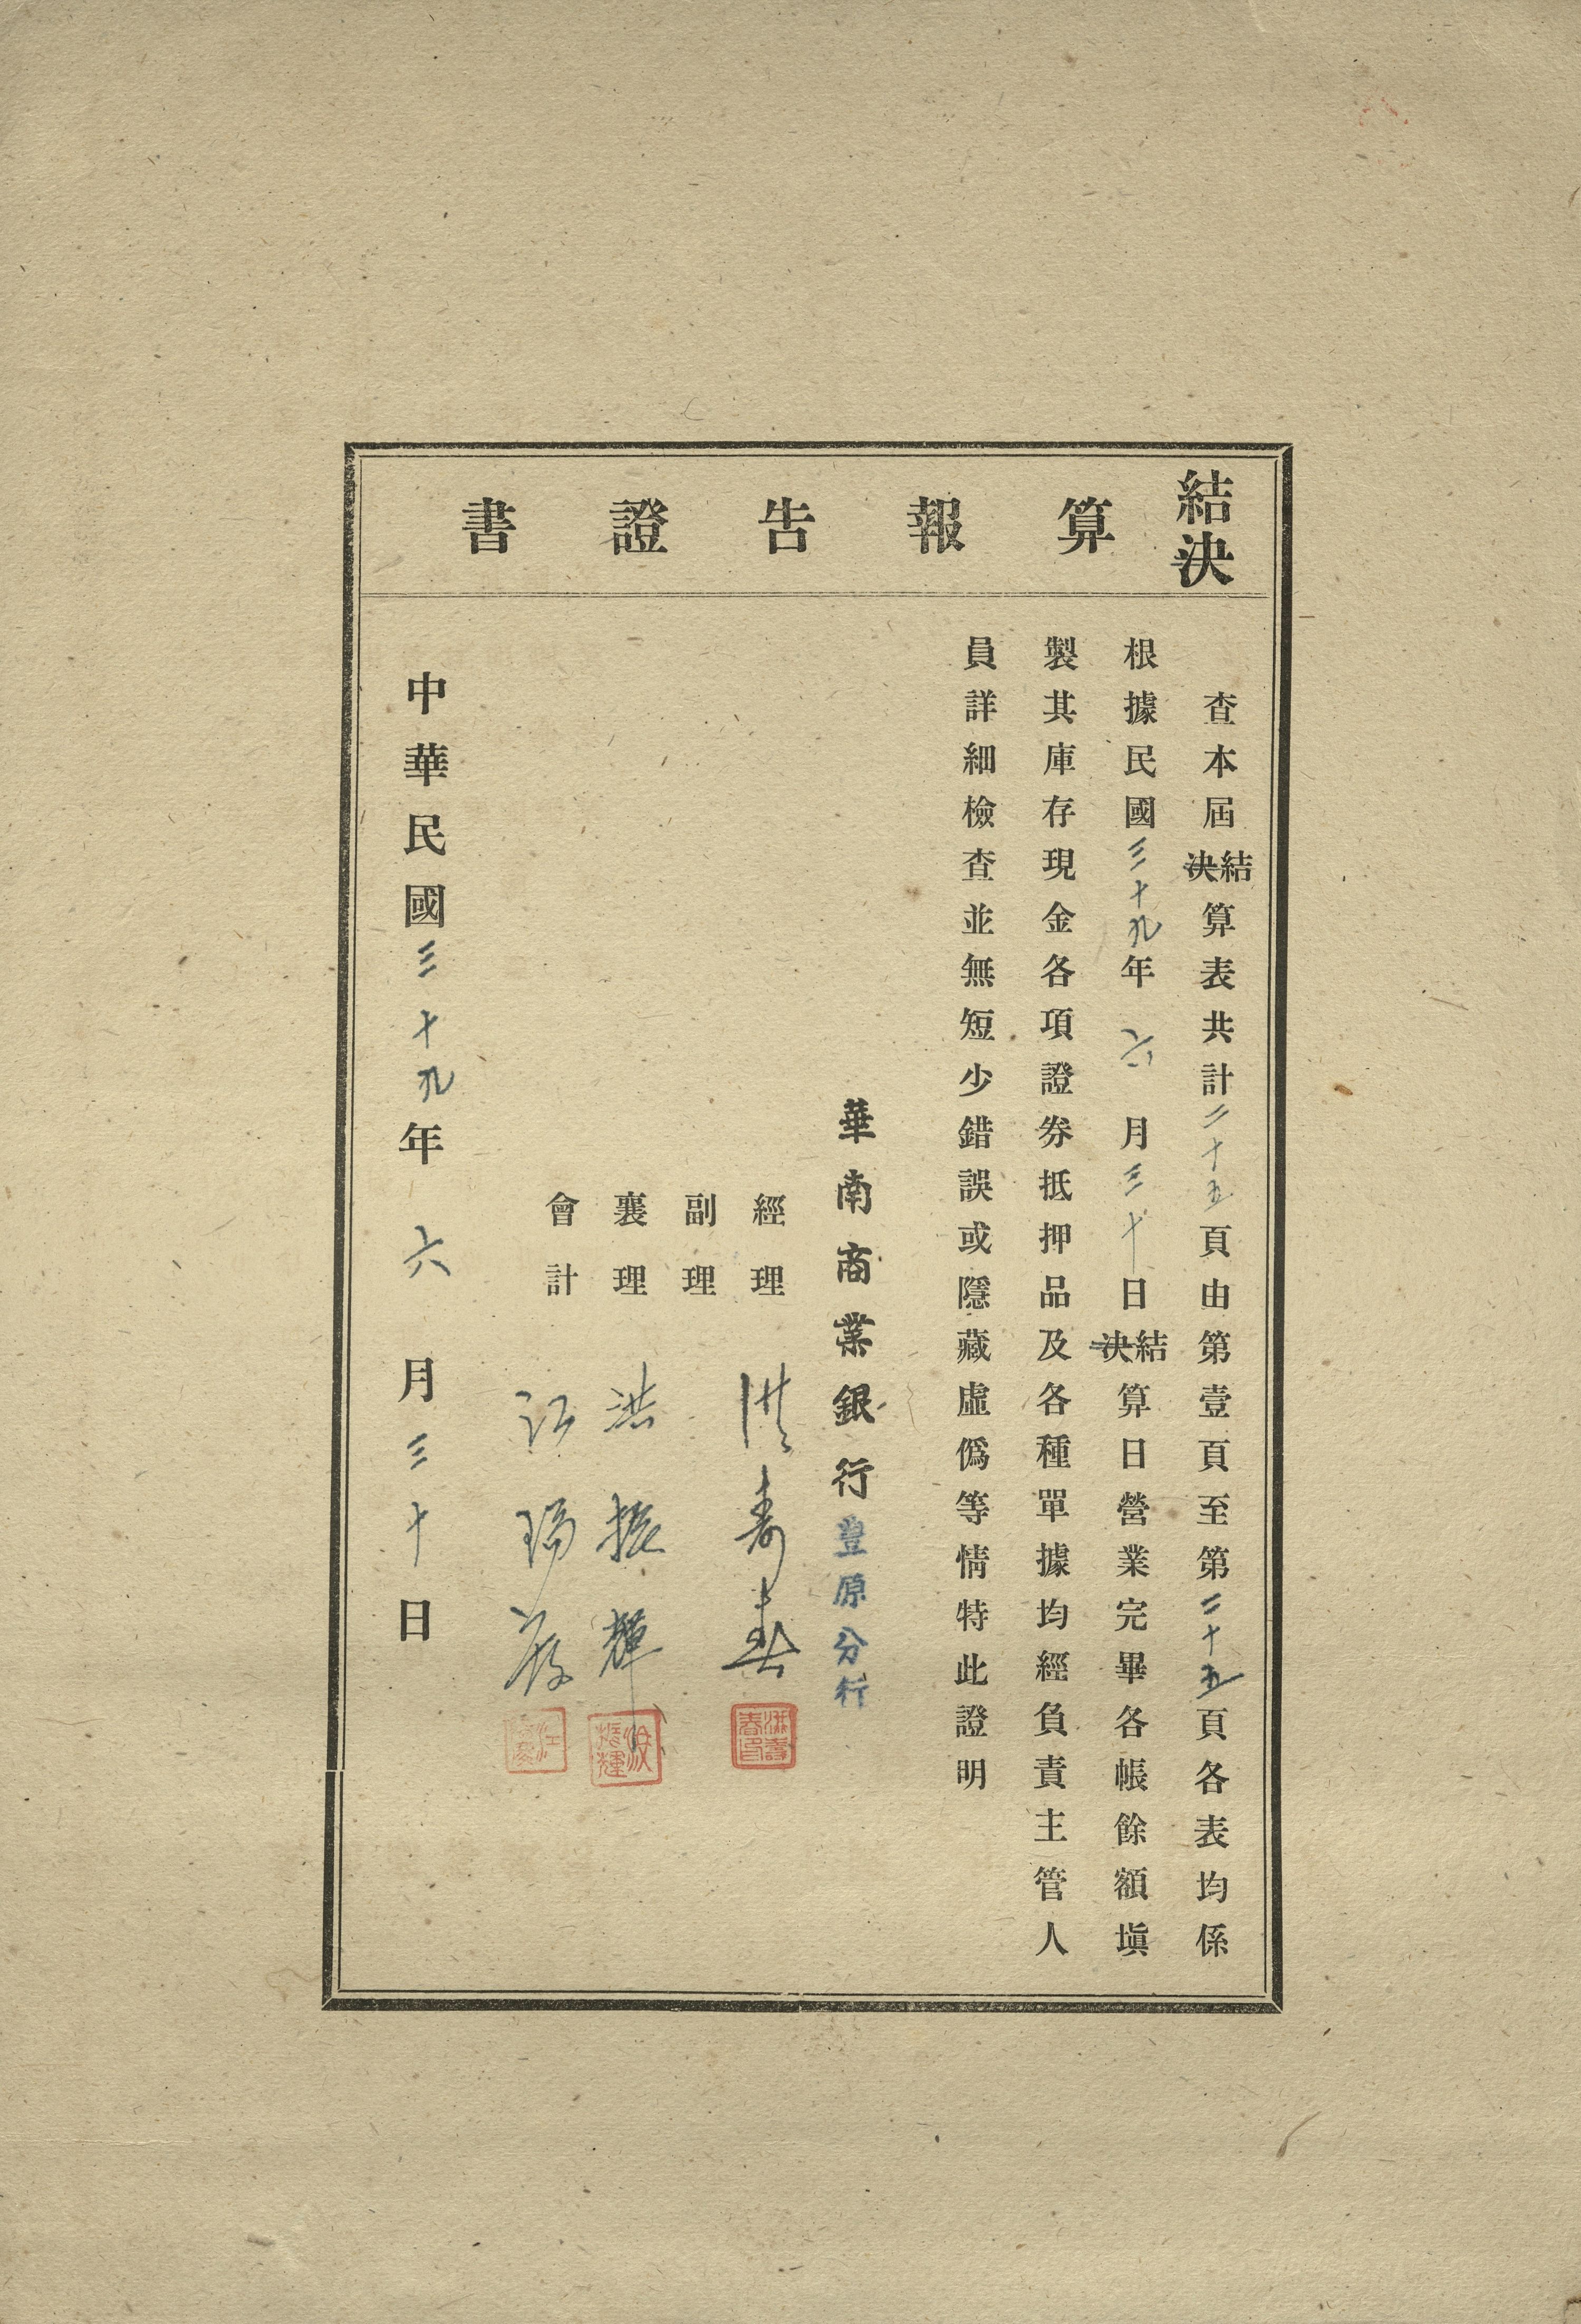 結決算報告證書
查本屆結決算表共計二十五頁由第壹頁至第二十五頁各表均係
根據民國三十九年六月三十日結決算日營業完畢各帳餘額塡
製其庫存現金各項證券抵押品及各種單據均經負責主管人
員詳細檢查並無短少錯誤或隱藏虛僞等情特此證明
華南商業銀行豐原分行
經理 洪壽春
副理
襄理 洪振輝
會計 江瑞
中華民國三十九年六月三十日
洪壽春印
洪振輝